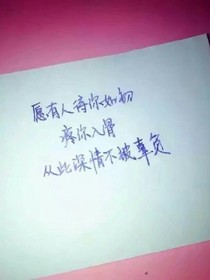 愿有人待你如初
疼你入骨
从此深情不被辜负